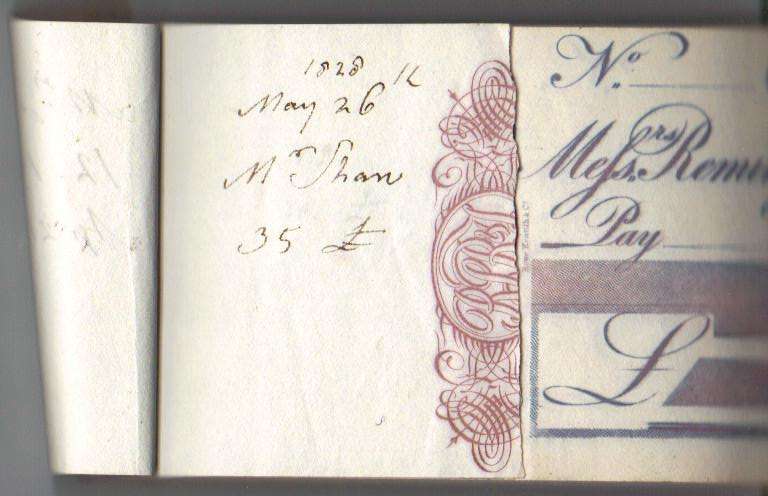 1828
May 26th
Mr Shaw
35 £
No.
Messrs. Remin
Pay
£